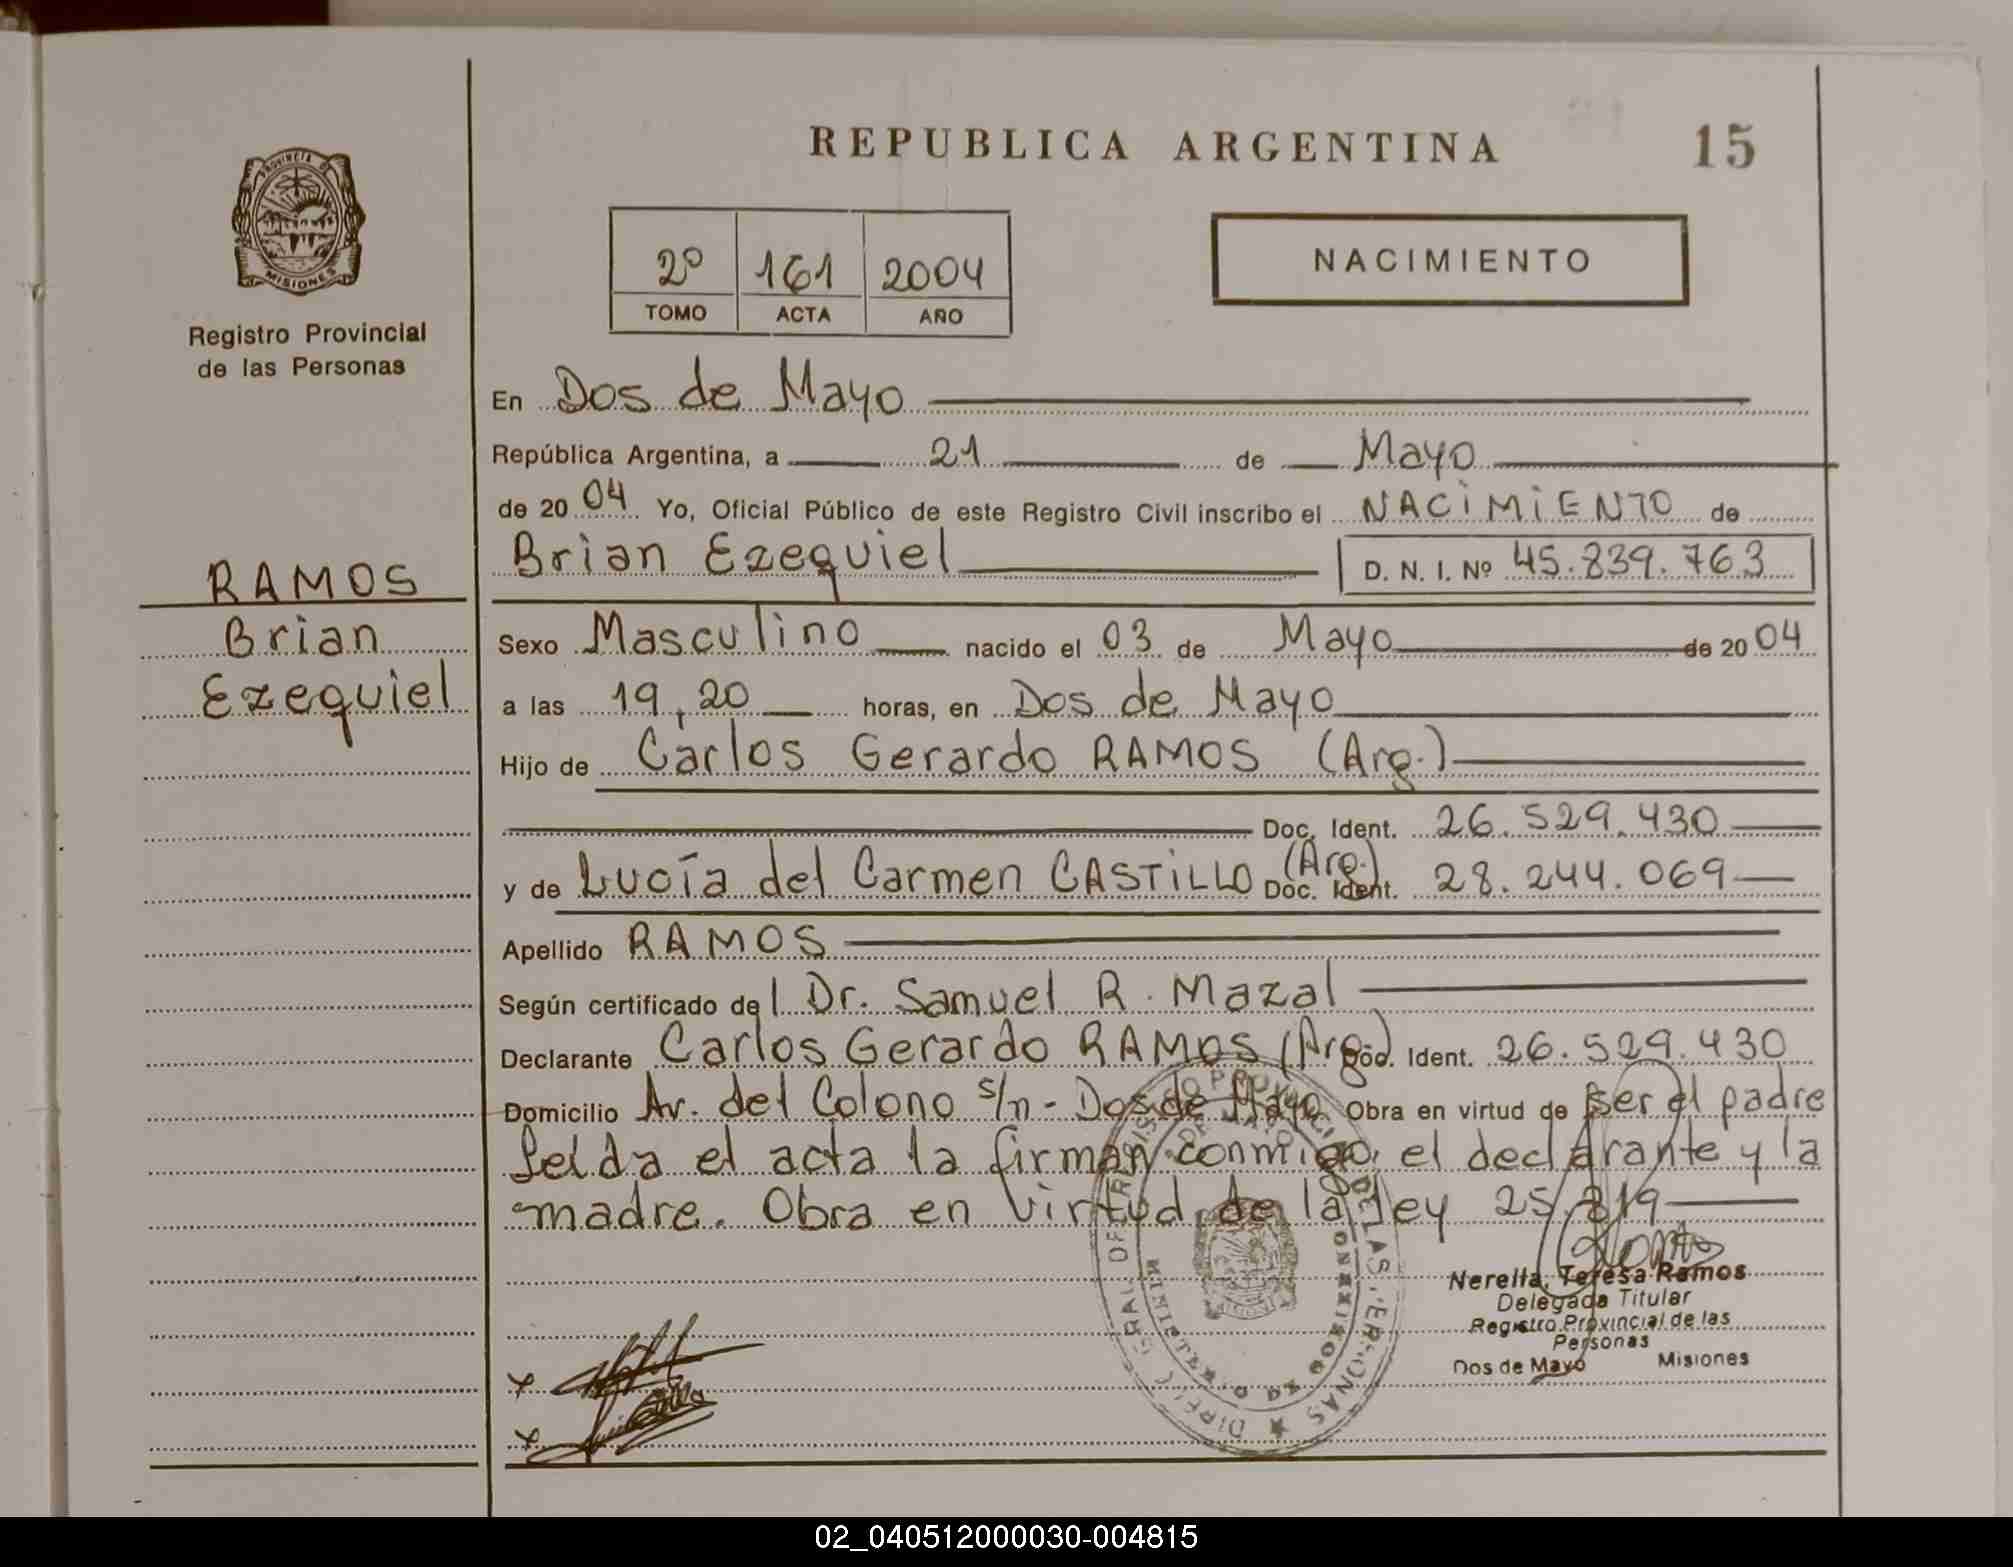 REPUBLICA ARGENTINA
15
PROVINCIA D
MISIONES
Registro Provincial
de las Personas
2º 161 2004
TOMO ACTA AÑO
NACIMIENTO
En Dos de Mayo
República Argentina, a 21 de Mayo
de 2004 Yo, Oficial Público de este Registro Civil inscribo el NACIMIENTO de
Brian Ezequiel D. N. I. Nº 45.839.763
RAMOS
Brian
Ezequiel
Sexo Masculino nacido el 03 de Mayo de 2004
a las 19,20 horas, en Dos de Mayo
Hijo de Carlos Gerardo RAMOS (Arg.)
Doc. Ident. 26.529.430
y de Lucía del Carmen CASTILLO (Arg.) Doc. Ident. 28.244.069
Apellido RAMOS
Según certificado del Dr. Samuel R. Mazal
Declarante Carlos Gerardo RAMOS (Arg.) Doc. Ident. 26.529.430
Domicilio Av. del Colono s/n - Dos de Mayo Obra en virtud de ser el padre
Leida el acta la firman conmigo, el declarante y la
madre. Obra en virtud de la ley 25.819
Nerella, Teresa Ramos
Delegada Titular
Registro Provincial de las
Personas
Dos de Mayo Misiones
02_040512000030-004815